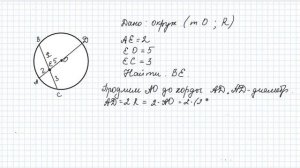 Дано: окруж (т O ; R)
AE = 2
EO = 5
EC = 3
Найти: BE.
Продлим AO до хорды AD, AD-диаметр
AD = 2R = 2·AO = 2·(
B
D
2
E
5
O
2
3
A
C